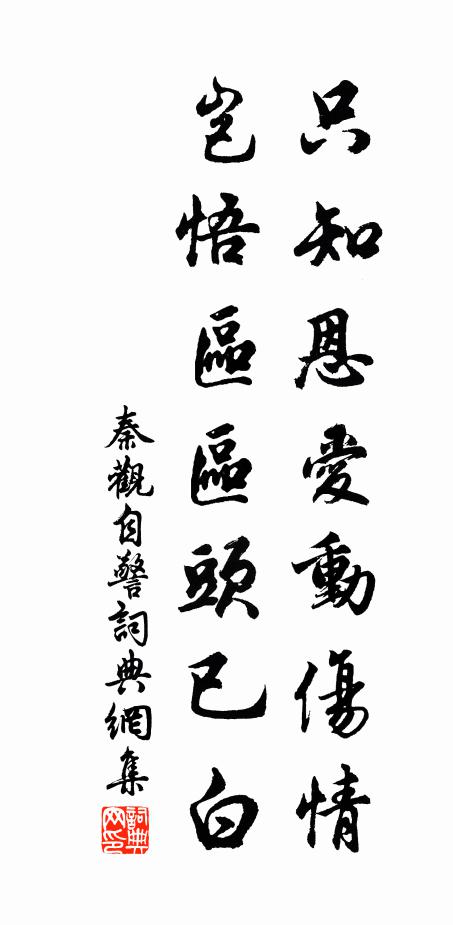 只知恩愛動傷情
豈悟區區頭已白
秦觀自警詞典網集
詞典网印